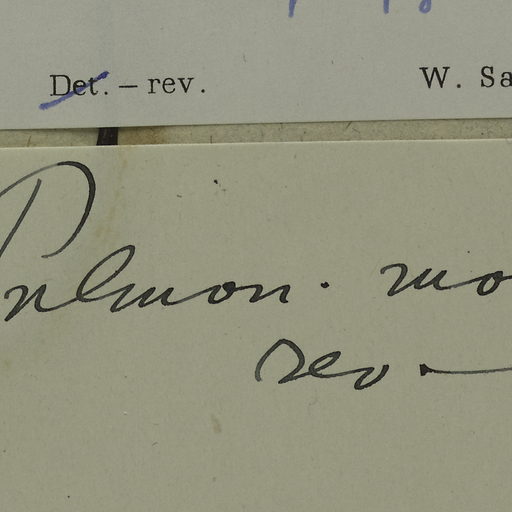 Det. – rev. W. Sa
Pulmon. mo
rev. —